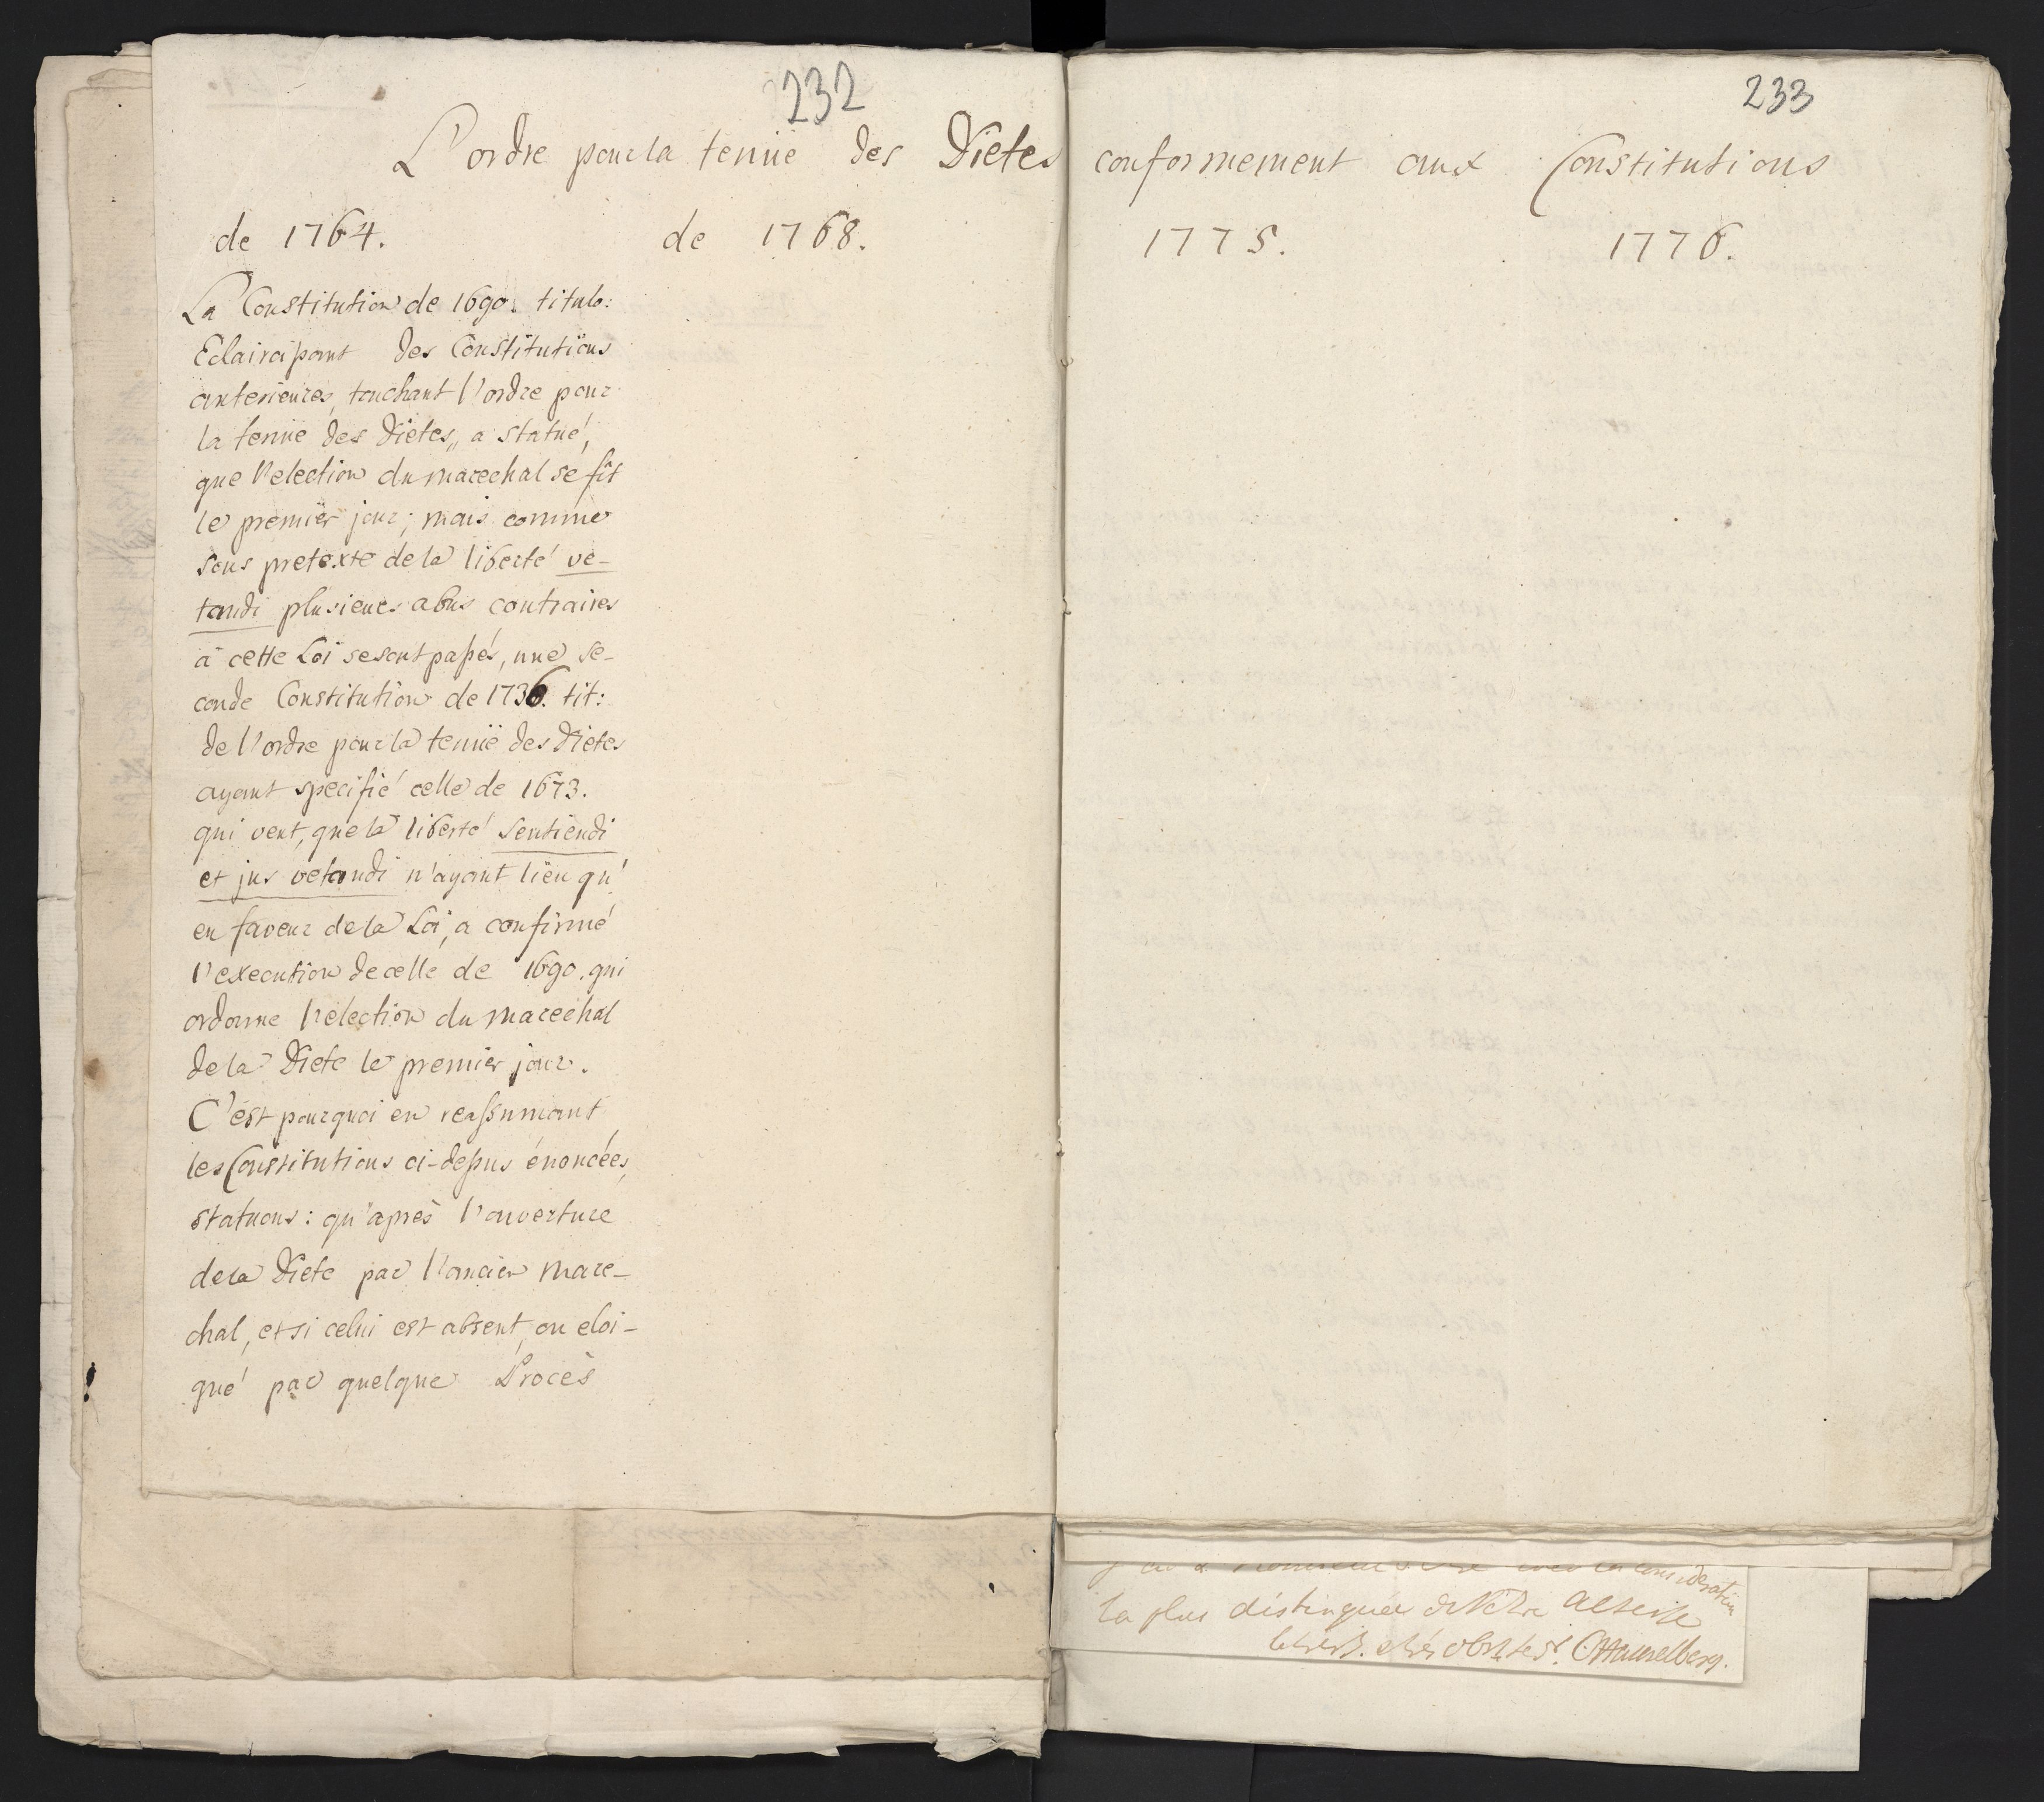 232
233
L'ordre pour la tenüe des Dietes conformement aux Constitutions
de 1764. de 1768. 1775. 1776.
La Constitution de 1690. titulo:
Eclaircissant des Constitutions
anterieures, touchant l'ordre pour
la tenüe des Dietes,, a statué,
que l'election du marechal se fit
le premier jour; mais comme
sous pretexte de la liberté ve-
tandi plusieurs abus contraires
à cette Loi se sont passés, une se-
conde Constitution de 1736. tit:
de l'ordre pour la tenüe des Dietes
ayant specifié celle de 1673.
qui veut, que la liberté sentiendi
et jus vetandi n'ayant lieu qu'
en faveur de la Loi, a confirmé
l'execution de celle de 1690. qui
ordonne l'election du marechal
de la Diete le premier jour.
C'est pourquoi en reassumant
les Constitutions ci-dessus énoncées,
statuons: qu'après l'ouverture
de la Diete par l'ancien mare-
chal, et si celui est absent, ou eloi-
gné par quelque Procès
consideration
la plus distinguée de Votre Altesse